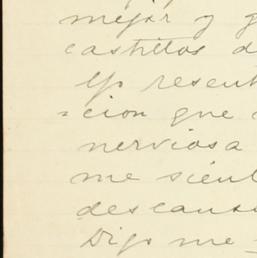 mejor y g
castillos d
lp resent
=cion que
nerviosa
me sient
descans
Digo me